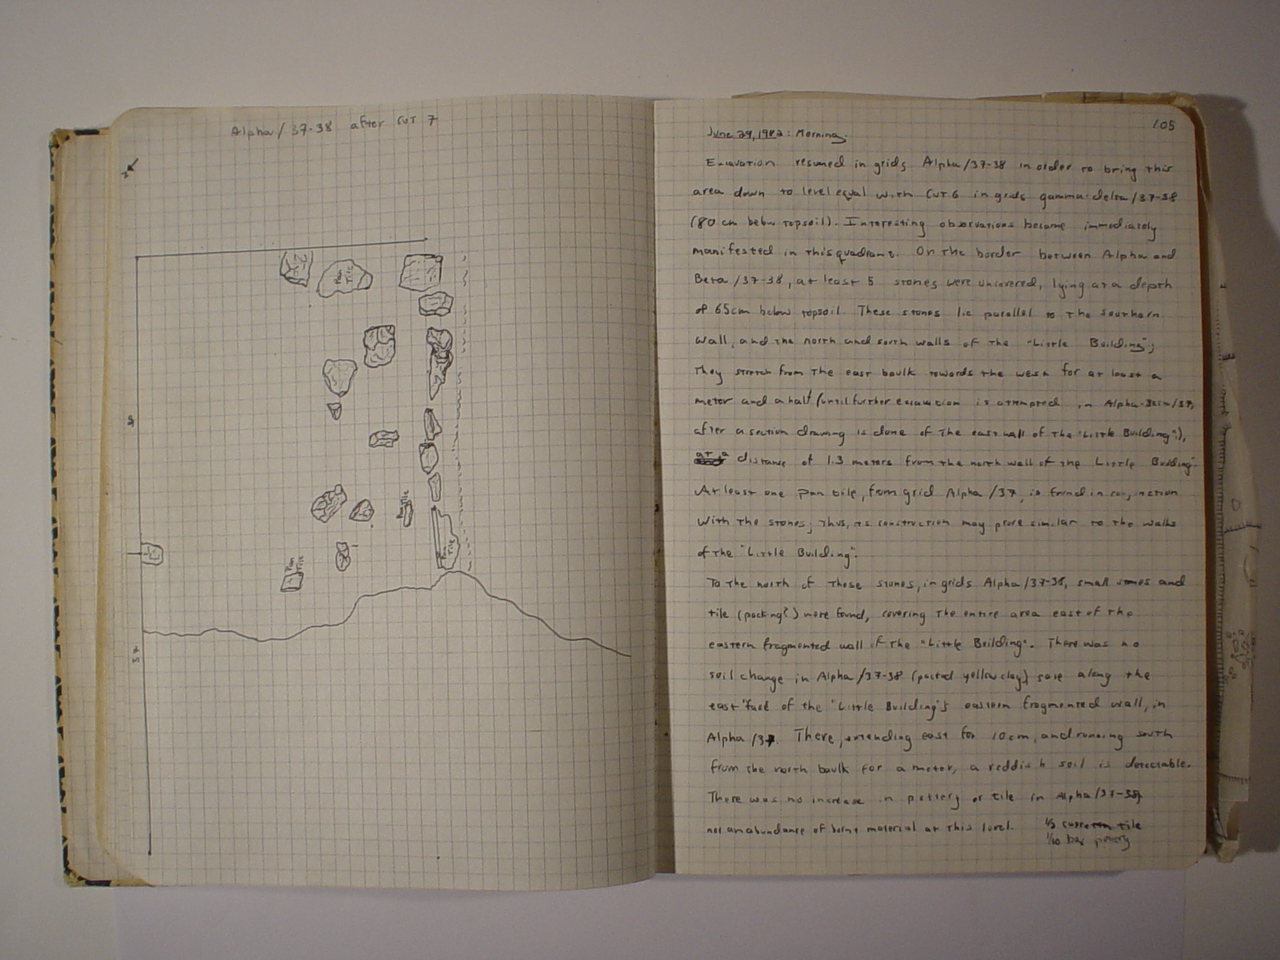 Alpha/37-38 after CUT 7
N
38
Pan Tile
Pan Tile
Pan Tile
Pan Tile
37
105
June 29, 1982: Morning.
Excavation resumed in grids Alpha/37-38 in order to bring this
area down to level equal with CUT 6 in grids gamma-delta/37-38
(80 cm below topsoil). Interesting observations became immediately
manifested in this quadrant. On the border between Alpha and
Beta/37-38, at least 5 stones were uncovered, lying at a depth
of 65cm below topsoil. These stones lie parallel to the southern
wall, and the north and south walls of the "Little Building";
They stretch from the east baulk towards the west for at least a
meter and a half (until further excavation is attempted in Alpha-Beta/37,
after a section drawing is done of the east wall of the "Little Building"),
at a distance of 1.3 meters from the north wall of the Little Building.
At least one pan tile, from grid Alpha/37, is found in conjunction
with the stones; thus, its construction may prove similar to the walls
of the "Little Building".
To the north of these stones, in grids Alpha/37-38, small stones and
tile (packing?) were found, covering the entire area east of the
eastern fragmented wall of the "Little Building". There was no
soil change in Alpha/37-38 (packed yellow clay) save along the
east face of the "Little Building's eastern fragmented wall, in
Alpha/37. There, extending east for 10cm, and running south
from the north baulk for a meter, a reddish soil is detectable.
There was no increase in pottery or tile in Alpha/37-38,
nor an abundance of burnt material at this level. 1/3 tile
1/10 bag pottery